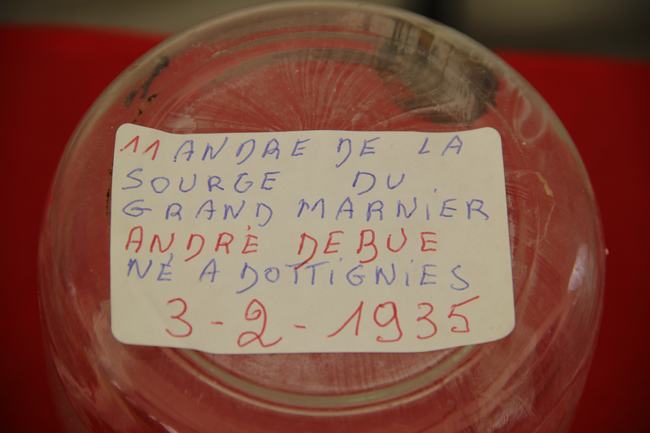 11 ANDRE DE LA
SOURGE DU
GRAND MARNiER
ANDRÈ DEBUE
NE A DOTTiGNiES
3-2-1935